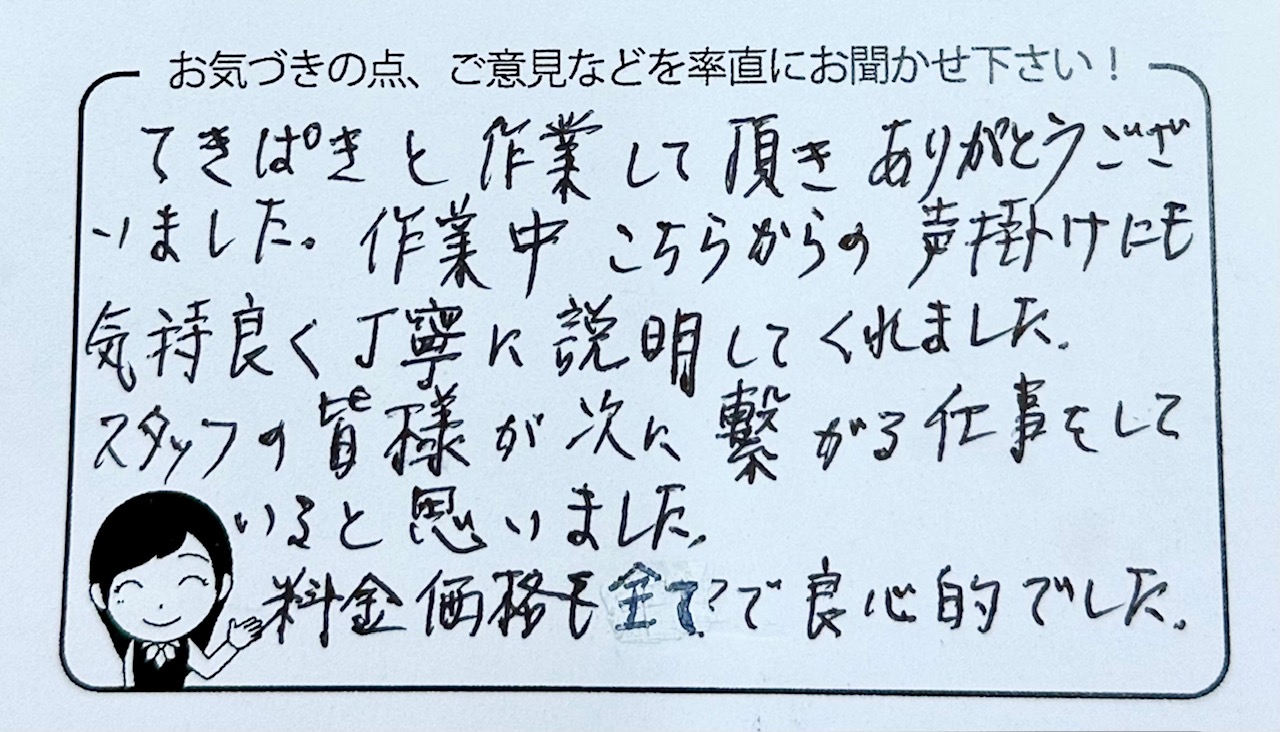 お気づきの点、ご意見などを率直にお聞かせ下さい！
てきぱきと作業して頂きありがとうござ
いました。作業中こちらからの声掛けにも
気持良く丁寧に説明してくれました。
スタッフの皆様が次に繋がる仕事をして
いると思いました。
料金価格も全てで良心的でした。